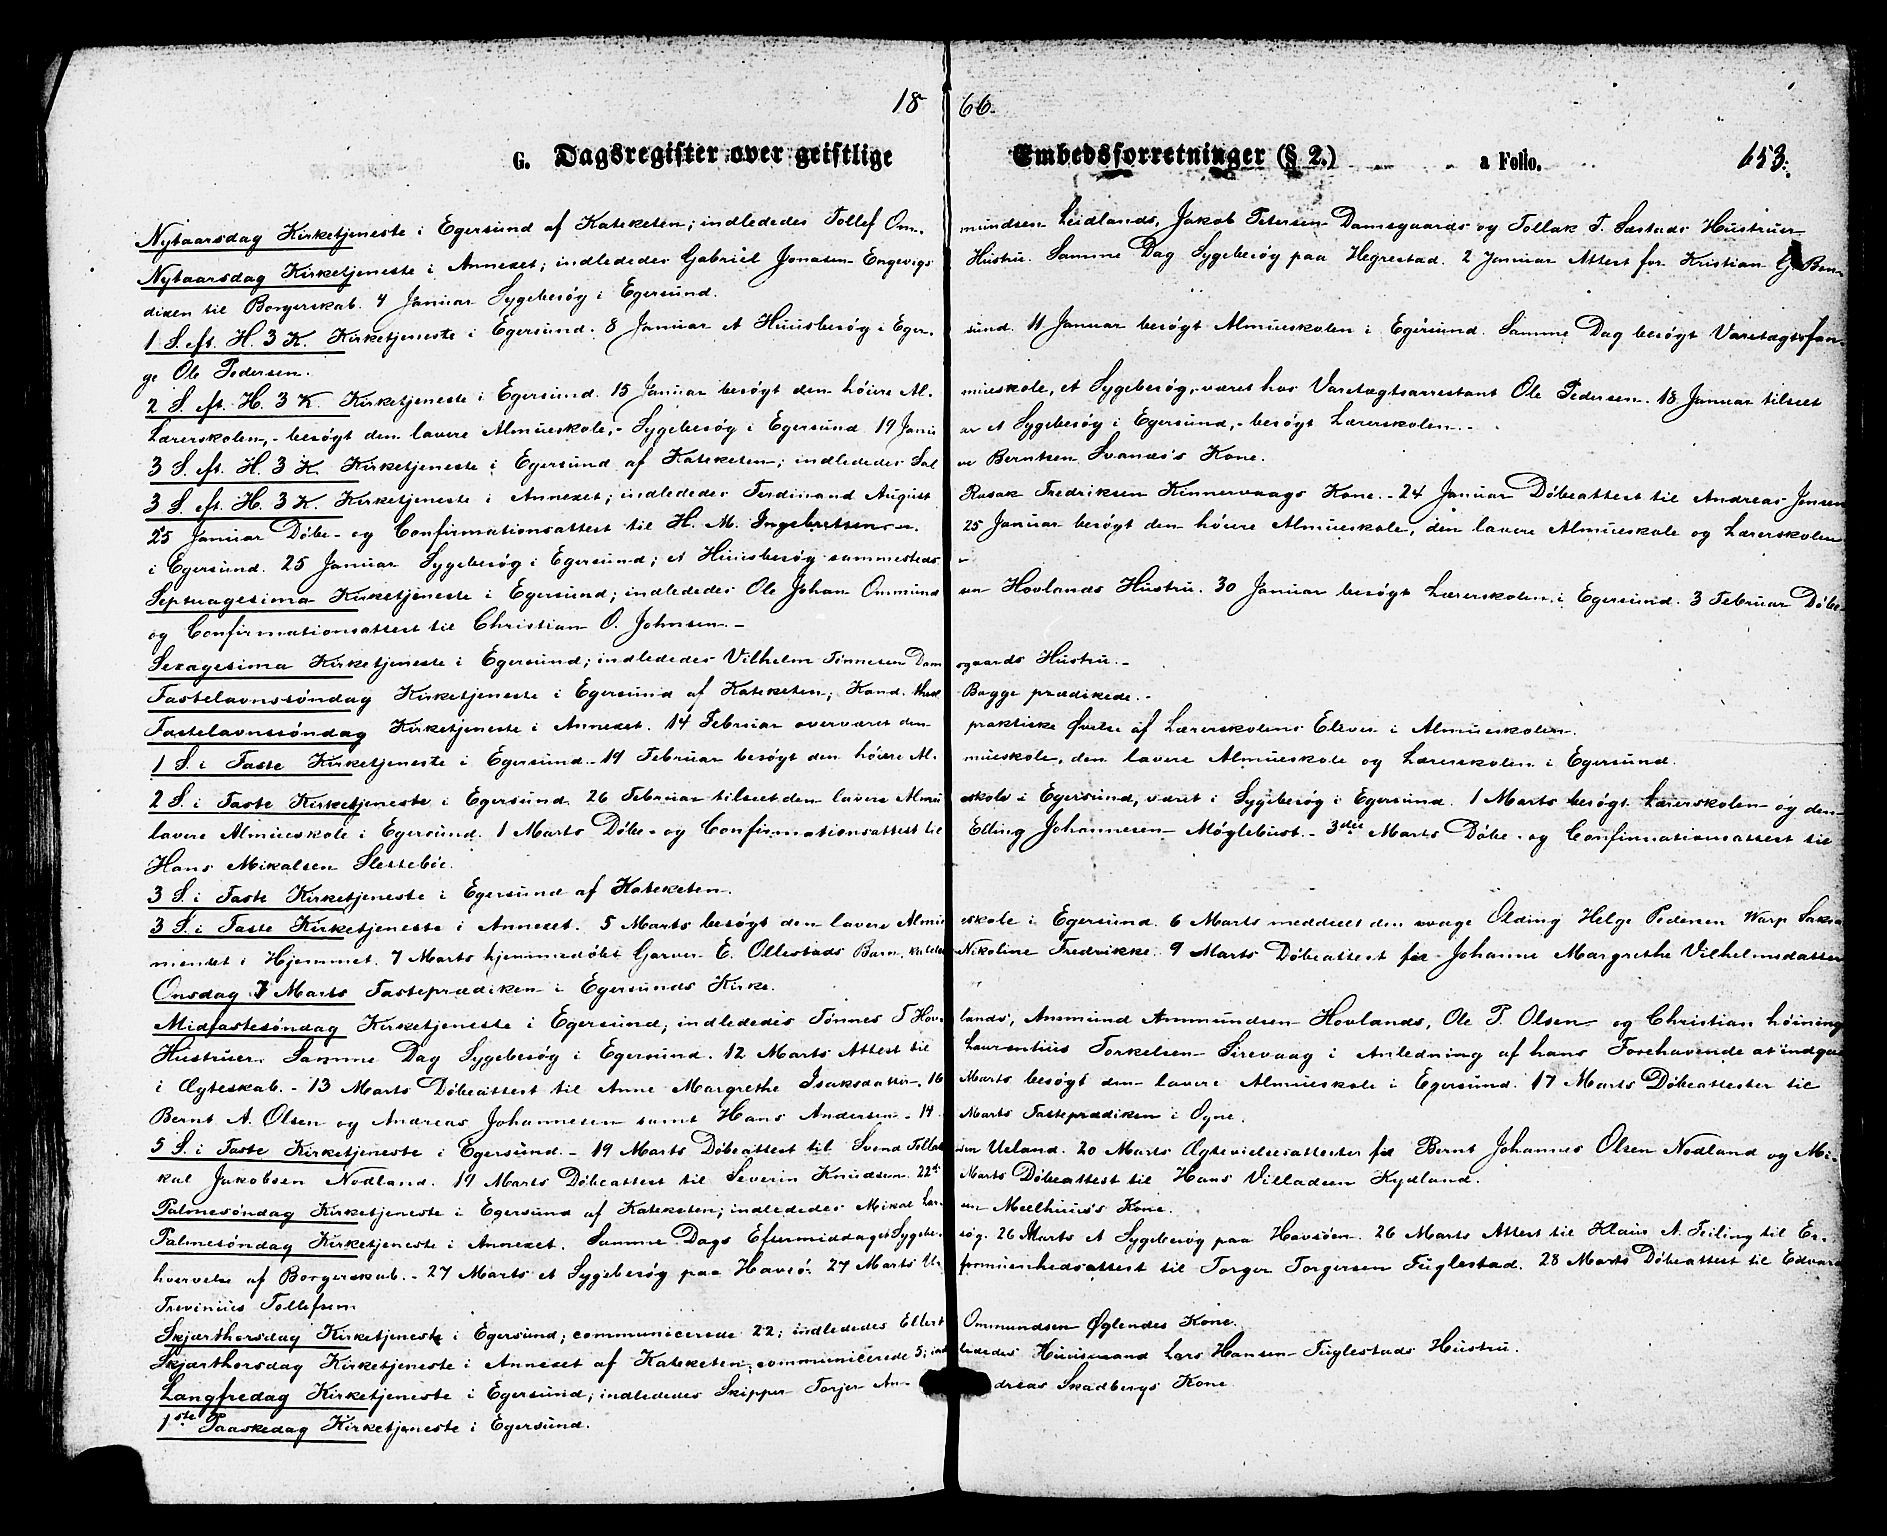 1866.
G. Dagsregister over geistlige Embedsforretninger (§ 2.) a Folio. 653.
Nytaarsdag Kirketjeneste i Egersund af Kateketen; indlededes Tollef Ommundsen Leidlands, Jakob Petersen Damsgaards og Tollak T. Sæstads Hustruer
Nytaarsdag Kirketjeneste i Annexet; indlededes Gabriel Jonasen Engevigs Hustru. Samme Dag Sygebesøg paa Hegrestad. 2 Januar Attest for Kristian
dixen til Borgerskab. 4 Januar Sygebesøg i Egersund.
1 S. eft. H. 3 K. Kirketjeneste i Egersund. 8 Januar et Huusbesøg i Egersund. 11 Januar besøgt Almueskolen i Egersund. Samme Dag besøgt Varetægtsfan-
ge Ole Pedersen.
2 S. eft. H. 3 K. Kirketjeneste i Egersund. 15 Januar besøgt den høiere Almueskole, et Sygebesøg, været hos Varetægtsarrestant Ole Pedersen. 18 Januar tilseet
Lærerskolen, - besøgt den lavere Almueskole, - Sygebesøg i Egersund. 19 Januar et Sygebesøg i Egersund, - besøgt Lærerskolen. -
3 S. eft. H. 3 K. Kirketjeneste i Egersund af Kateketen; indlededes Salve Berntsen Svanes's Kone.
3 S. eft. H. 3 K. Kirketjeneste i Annexet; indlededes Ferdinand August Rasak Fredriksen Kinnervaags Kone. - 24 Januar Døbeattest til Andreas Jensen
25 Januar Døbe- og Confirmationsattest til H. M. Ingebretsen. 25 Januar besøgt den høiere Almueskole, den lavere Almueskole og Lærerskolen
i Egersund. 25 Januar Sygebesøg i Egersund; et Huusbesøg sammesteds. -
Septuagesima Kirketjeneste i Egersund; indlededes Ole Johan Ommundsen Hovlands Hustru. 30 Januar besøgt Lærerskolen i Egersund. 3 Februar Døbe-
og Confirmationsattest til Christian O. Johnsen. -
Sexagesima Kirketjeneste i Egersund; indlededes Vilhelm Tønnesen Damsgaards Hustru. -
Fastelavnssøndag Kirketjeneste i Egersund af Kateketen; Kand. theol. Bugge prædikede. -
Fastelavnssøndag Kirketjeneste i Annexet. 14 Februar overværet den praktiske Øvelse af Lærerskolens Elever i Almueskolen.
1 S. i Faste Kirketjeneste i Egersund. 19 Februar besøgt den høiere Almueskole, den lavere Almueskole og Lærerskolen i Egersund.
2 S. i Faste Kirketjeneste i Egersund. 26 Februar tilseet den lavere Almueskole i Egersund, været i Sygebesøg i Egersund. 1 Marts besøgt Lærerskolen og den
lavere Almueskole i Egersund. 1 Marts Døbe- og Confirmationsattest til Elling Johannesen Møglebust. - 3die Marts Døbe- og Confirmationsattest til
Hans Mikalsen Slettebøe.
3 S. i Faste Kirketjeneste i Egersund af Kateketen.
3 S. i Faste Kirketjeneste i Annexet. 5 Marts besøgt den lavere Almueskole i Egersund. 6 Marts meddeelt den svage Olding Helge Pedersen Warp Sakra-
mentet i Hjemmet. 7 Marts hjemmedøbt Garver E. Ollestads Barn, kaldet Nikoline Fredrikke. 9 Marts Døbeattest for Johanne Margrethe Vilhelmsdatter
Onsdag 7 Marts Fasteprædiken i Egersunds Kirke.
Midfastesøndag Kirketjeneste i Egersund; indlededes Tønnes T. Hovlands, Ansmund Ammundsen Hovlands, Ole P. Olsen og Christian
Hustruer. Samme Dag Sygebesøg i Egersund. 12 Marts Attest til Laurentius Torkelsen Sirevaag i Anledning af hans Forehavende at indgaa
i Ægteskab. - 13 Marts Døbeattest til Anne Margrethe Isaksdatter. 16 Marts besøgt den lavere Almueskole i Egersund. 17 Marts Døbeattester til
Bernt A. Olsen og Andreas Johannesen samt Hans Andersen. 14 Marts Fasteprædiken i Ogne.
5 S. i Faste Kirketjeneste i Egersund. - 19 Marts Døbeattest til Svend Tollefsen Ueland. 20 Marts Ægtevielsesattester for Bernt Johannes Olsen Nodland og Mi-
kal Jakobsen Nodland. 19 Marts Døbeattest til Severin Knudsen. 22de Marts Døbeattest til Hans Villadsen Kydland.
Palmesøndag Kirketjeneste i Egersund af Kateketen; indlededes Mikal Larsen Meelhuus's Kone.
Palmesøndag Kirketjeneste i Annexet. Samme Dags Eftermiddag et Sygebesøg. 26 Marts et Sygebesøg paa Havsøen. 26 Marts Attest til Klaus A. Feiling til Er-
hvervelse af Borgerskab. - 27 Marts et Sygebesøg paa Havsø. 27 Marts Uformuenhedsattest til Torger Torgersen Fuglestad. 28 Marts Døbeattest til Edvard
Trevinius Tollefsen
Skjærthorsdag Kirketjeneste i Egersund; communicerede 22; indlededes Ellert Ommundsen Øglendes Kone.
Skjærthorsdag Kirketjeneste i Annexet af Kateketen; communicerede 5; indlededes Huusmand Lars Hansen Fuglestads Hustru.
Langfredag Kirketjeneste i Egersund; indlededes Skipper Torjer Andreas Skadbergs Kone.
1ste Paaskedag Kirketjeneste i Egersund.